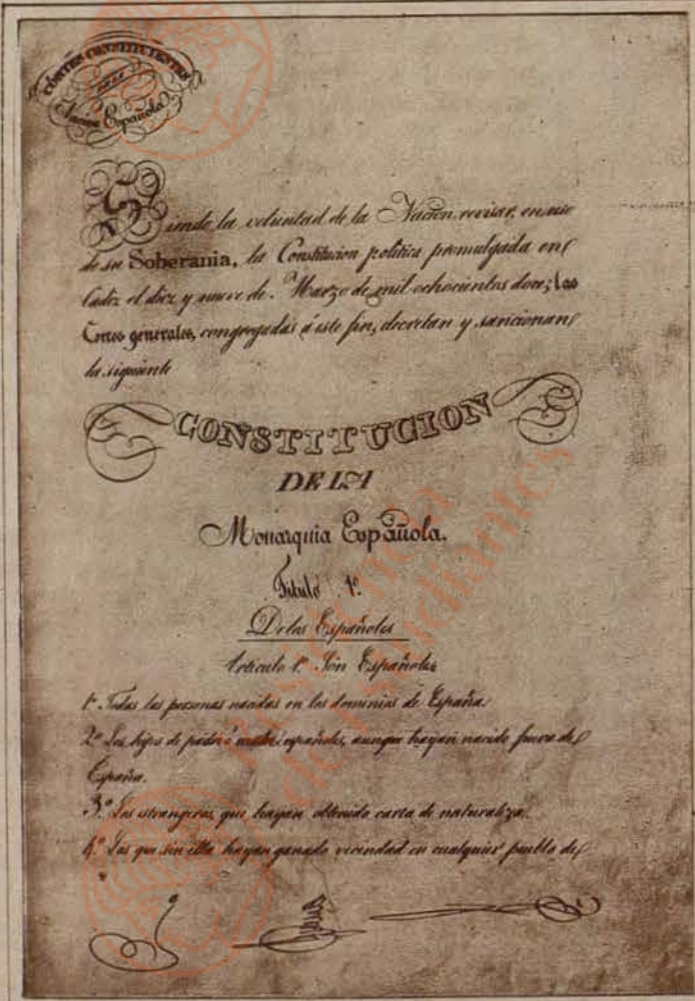 CÓRTES CONSTITUYENTES
DE LA
Nacion Española
Siendo la voluntad de la Nacion revisar, en uso
de su Soberania, la Constitucion politica promulgada en
Cadiz el diez y nueve de Marzo de mil ochocientos doce; las
Cortes generales, congregadas á este fin, decretan y sancionan
la siguiente
CONSTITUCION
DE LA
Monarquia Española.
Titulo 1º
De los Españoles
Articulo 1º Son Españoles
1º Todas las personas nacidas en los dominios de España.
2º Los hijos de padre ó madre españoles, aunque hayan nacido fuera de
España.
3º Los estrangeros que hayan obtenido carta de naturaleza.
4º Los que sin ella hayan ganado vecindad en cualquier pueblo de
Residencia
de Estudiantes